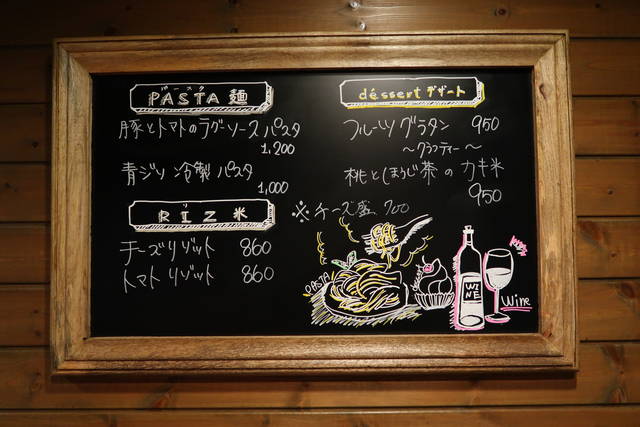 パースタ
PASTA 麺
豚とトマトのラグーソース パスタ
1,200
青ジソ 冷製 パスタ
1,000
RIZ 米
チーズリゾット 860
トマトリゾット 860
déssert デザート
フルーツグラタン 950
～クラフティー～
桃とほうじ茶の カキ氷
950
※チーズ盛 700
PASTA
WINE
Wine